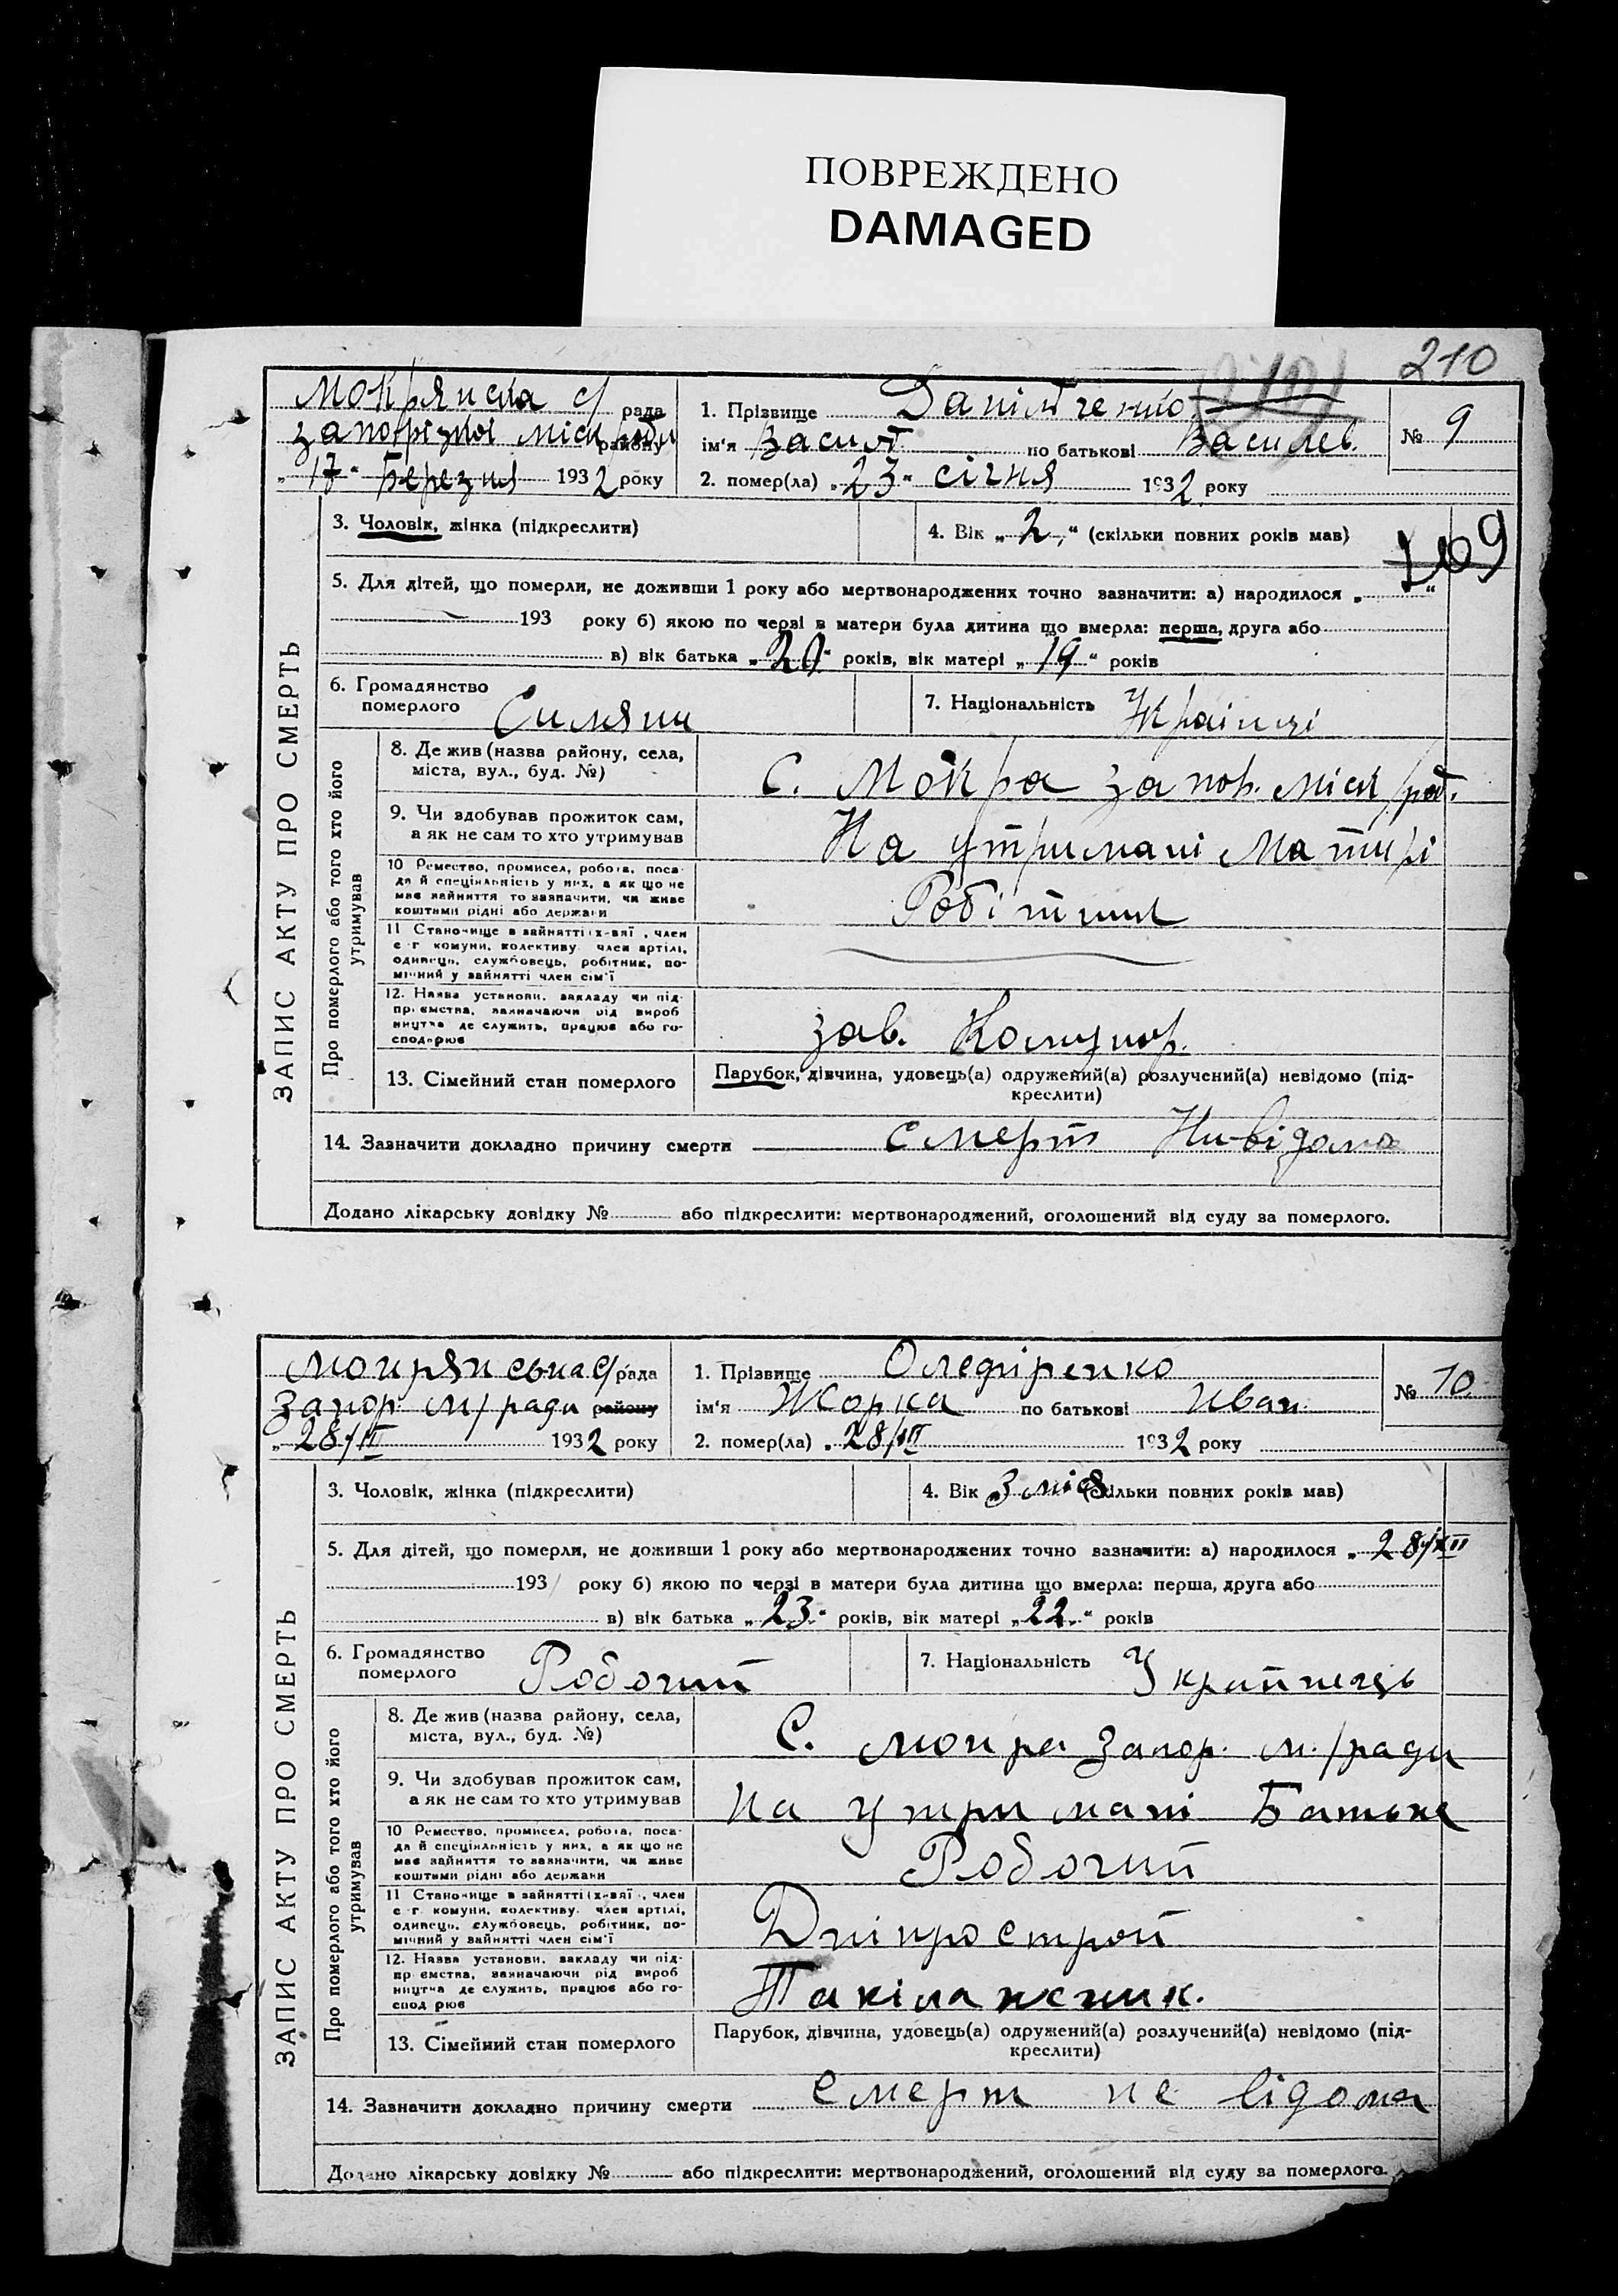 ПОВРЕЖДЕНО
DAMAGED
210
Мокрянска с/ рада
запорізкої міськ ради району
„17“ Березня 1932 року
1. Прізвище Данільченко
ім'я Василь по батькові Василев.
№ 9
2. помер(ла) „23“ січня 1932 року
3. Чоловік, жінка (підкреслити)
4. Вік „2“ (скільки повних років мав)
109
5. Для дітей, що померли, не доживши 1 року або мертвонароджених точно зазначити: а) народилося „ “
193 року б) якою по черзі в матери була дитина що вмерла: перша, друга або
в) вік батька „ “ років, вік матері „19“ років
6. Громадянство померлого
7. Національність Українці
ЗАПИС АКТУ ПРО СМЕРТЬ
Про померлого або того хто його утримував
8. Де жив (назва району, села, міста, вул., буд. №)
С. Мокра запор. міск/рад.
9. Чи здобував прожиток сам, а як не сам то хто утримував
На утримані Матирі
10 Ремество, промисел, робота, посада й спеціяльність у них, а як що не має зайняття то зазначити, чи живе коштами рідні або держави
Робітниця
11 Становище в зайнятті (х-вяї , член с г. комуни, колективу член артілі, одинець, службовець, робітник, помічний у зайнятті член сім'ї
12. Назва установи, закладу чи підприємства, зазначаючи рід виробництва де служить, працює або господарює
зав. Комунар.
13. Сімейний стан померлого
Парубок, дівчина, удовець(а) одружений(а) розлучений(а) невідомо (підкреслити)
14. Зазначити докладно причину смерти смерт Нивідома
Додано лікарську довідку № або підкреслити: мертвонароджений, оголошений від суду за померлого.
Мокрянська с/рада
Запор. м/ради району
„28/III 1932 року
1. Прізвище Оледіренко
ім'я Жорка по батькові Иван.
№ 10
2. помер(ла) „28/III 1932 року
3. Чоловік, жінка (підкреслити)
4. Вік „3 міс (скільки повних років мав)
5. Для дітей, що померли, не доживши 1 року або мертвонароджених точно зазначити: а) народилося „28/XII
193 року б) якою по черзі в матери була дитина що вмерла: перша, друга або
в) вік батька „23“ років, вік матері „22“ років
6. Громадянство померлого Робочий
7. Національність Украйнець
ЗАПИС АКТУ ПРО СМЕРТЬ
Про померлого або того хто його утримував
8. Де жив (назва району, села, міста, вул., буд. №)
С. мокра Запор. м./ради
9. Чи здобував прожиток сам, а як не сам то хто утримував
На утримані Батька
10 Ремество, промисел, робота, посада й спеціяльність у них, а як що не має зайняття то зазначити, чи живе коштами рідні або держави
Робочий
11 Становище в зайнятті (х-вяї , член с г. комуни, колективу член артілі, одинець, службовець, робітник, помічний у зайнятті член сім'ї
Дніпрострой
12. Назва установи, закладу чи підприємства, зазначаючи рід виробництва де служить, працює або господрює
Такілажник.
13. Сімейний стан померлого
Парубок, дівчина, удовець(а) одружений(а) розлучений(а) невідомо (підкреслити)
14. Зазначити докладно причину смерти смерт не відома
Додано лікарську довідку № або підкреслити: мертвонароджений, оголошений від суду за померлого.